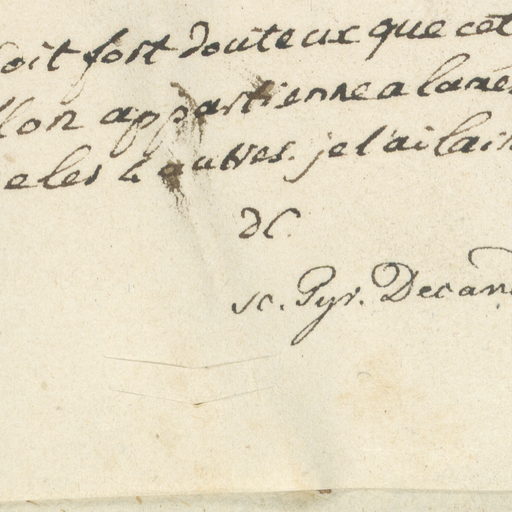 soit fort douteux que cet
llon appartienne a la mes
e les 4 autres. je l'ai lais
DC.
sc. Pyr. Decand